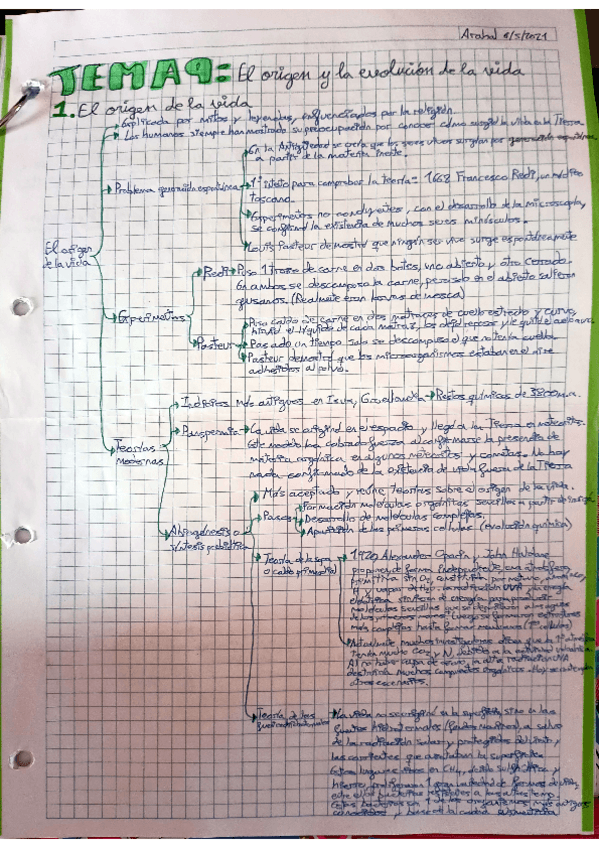 Arahal 6/5/2021
TEMA 9: El origen y la evolución de la vida
1. El origen de la vida
Explicada por mitos y leyendas, influenciados por la religión.
Los humanos siempre han mostrado su preocupación por conocer cómo surgió la vida en la Tierra
El origen de la vida
Problema generación espontánea
En la Antigüedad se creía que los seres vivos surgían por generación espontánea
a partir de la materia inerte.
1º intento para comprobar la teoría: 1668 Francesco Redi, un médico
toscano.
Experimentos no concluyentes, con el desarrollo de la microscopía,
se confirmó la existencia de muchos seres minúsculos.
Louis Pasteur demostró que ningún ser vivo surge espontáneamente
Experimentos
Redi → Puso 1 trozo de carne en dos botes, uno abierto y otro cerrado.
En ambos se descompuso la carne, pero solo en el abierto salieron
gusanos. (Realmente eran larvas de mosca)
Pasteur
Puso caldo de carne en dos matraces de cuello estrecho y curvo,
hirvió el líquido de cada matraz, los dejó reposar y le quitó el cuello a uno.
Pasado un tiempo solo se descompuso el que no tenía cuello.
Pasteur demostró que los microorganismos estaban en el aire
adheridos al polvo.
Teorías modernas
Indicios más antiguos en Isua, Groelandia → Restos químicos de 3800 m.a.
Panspermia → La vida se originó en el espacio y llegó a la Tierra en meteorit.
Este modelo ha cobrado fuerza al confirmarse la presencia de
materia orgánica en algunos meteoritos y cometas. No hay
nada confirmado de la existencia de vida fuera de la Tierra
Abiogénesis o
síntesis prebiótica
Más aceptado y reúne teorías sobre el origen de la vida.
Pasos
Formación moléculas orgánicas sencillas a partir de inorgá
Desarrollo de moléculas complejas.
Aparición de las primeras células (evolución química)
Teoría de la sopa
o caldo primordial
1920 Alexander Oparin y John Haldane
propone de forma independiente
primitiva sin O₂
H y vapor de H₂O. la radiación UVA y la energía
eléctrica
moléculas sencillas que se depositaron
más complejas hasta formar (1ª células)
Actualmente muchos investigadores dicen que la 1ª atmósfera
tenía mucho CO₂ y N, debido a la actividad volcánica
Al no haber capa de ozono, la alta radiación UVA
destruiría muchos compuestos orgánicos.
otros escenarios.
Teoría de las
La vida no se originó en la superficie, sino en las
fuentes hidrotermales (fondos marinos), a salvo
de la radiación solar y protegidos
las corrientes que azotaban la superficie
Estos lugares ricos en CH₄
hierro, 1 gran cantidad de formas de vida,
entre ellas bacterias resistentes a las altas temp.
Estas bacterias son 1 de los organismos más antiguos
conocidos y